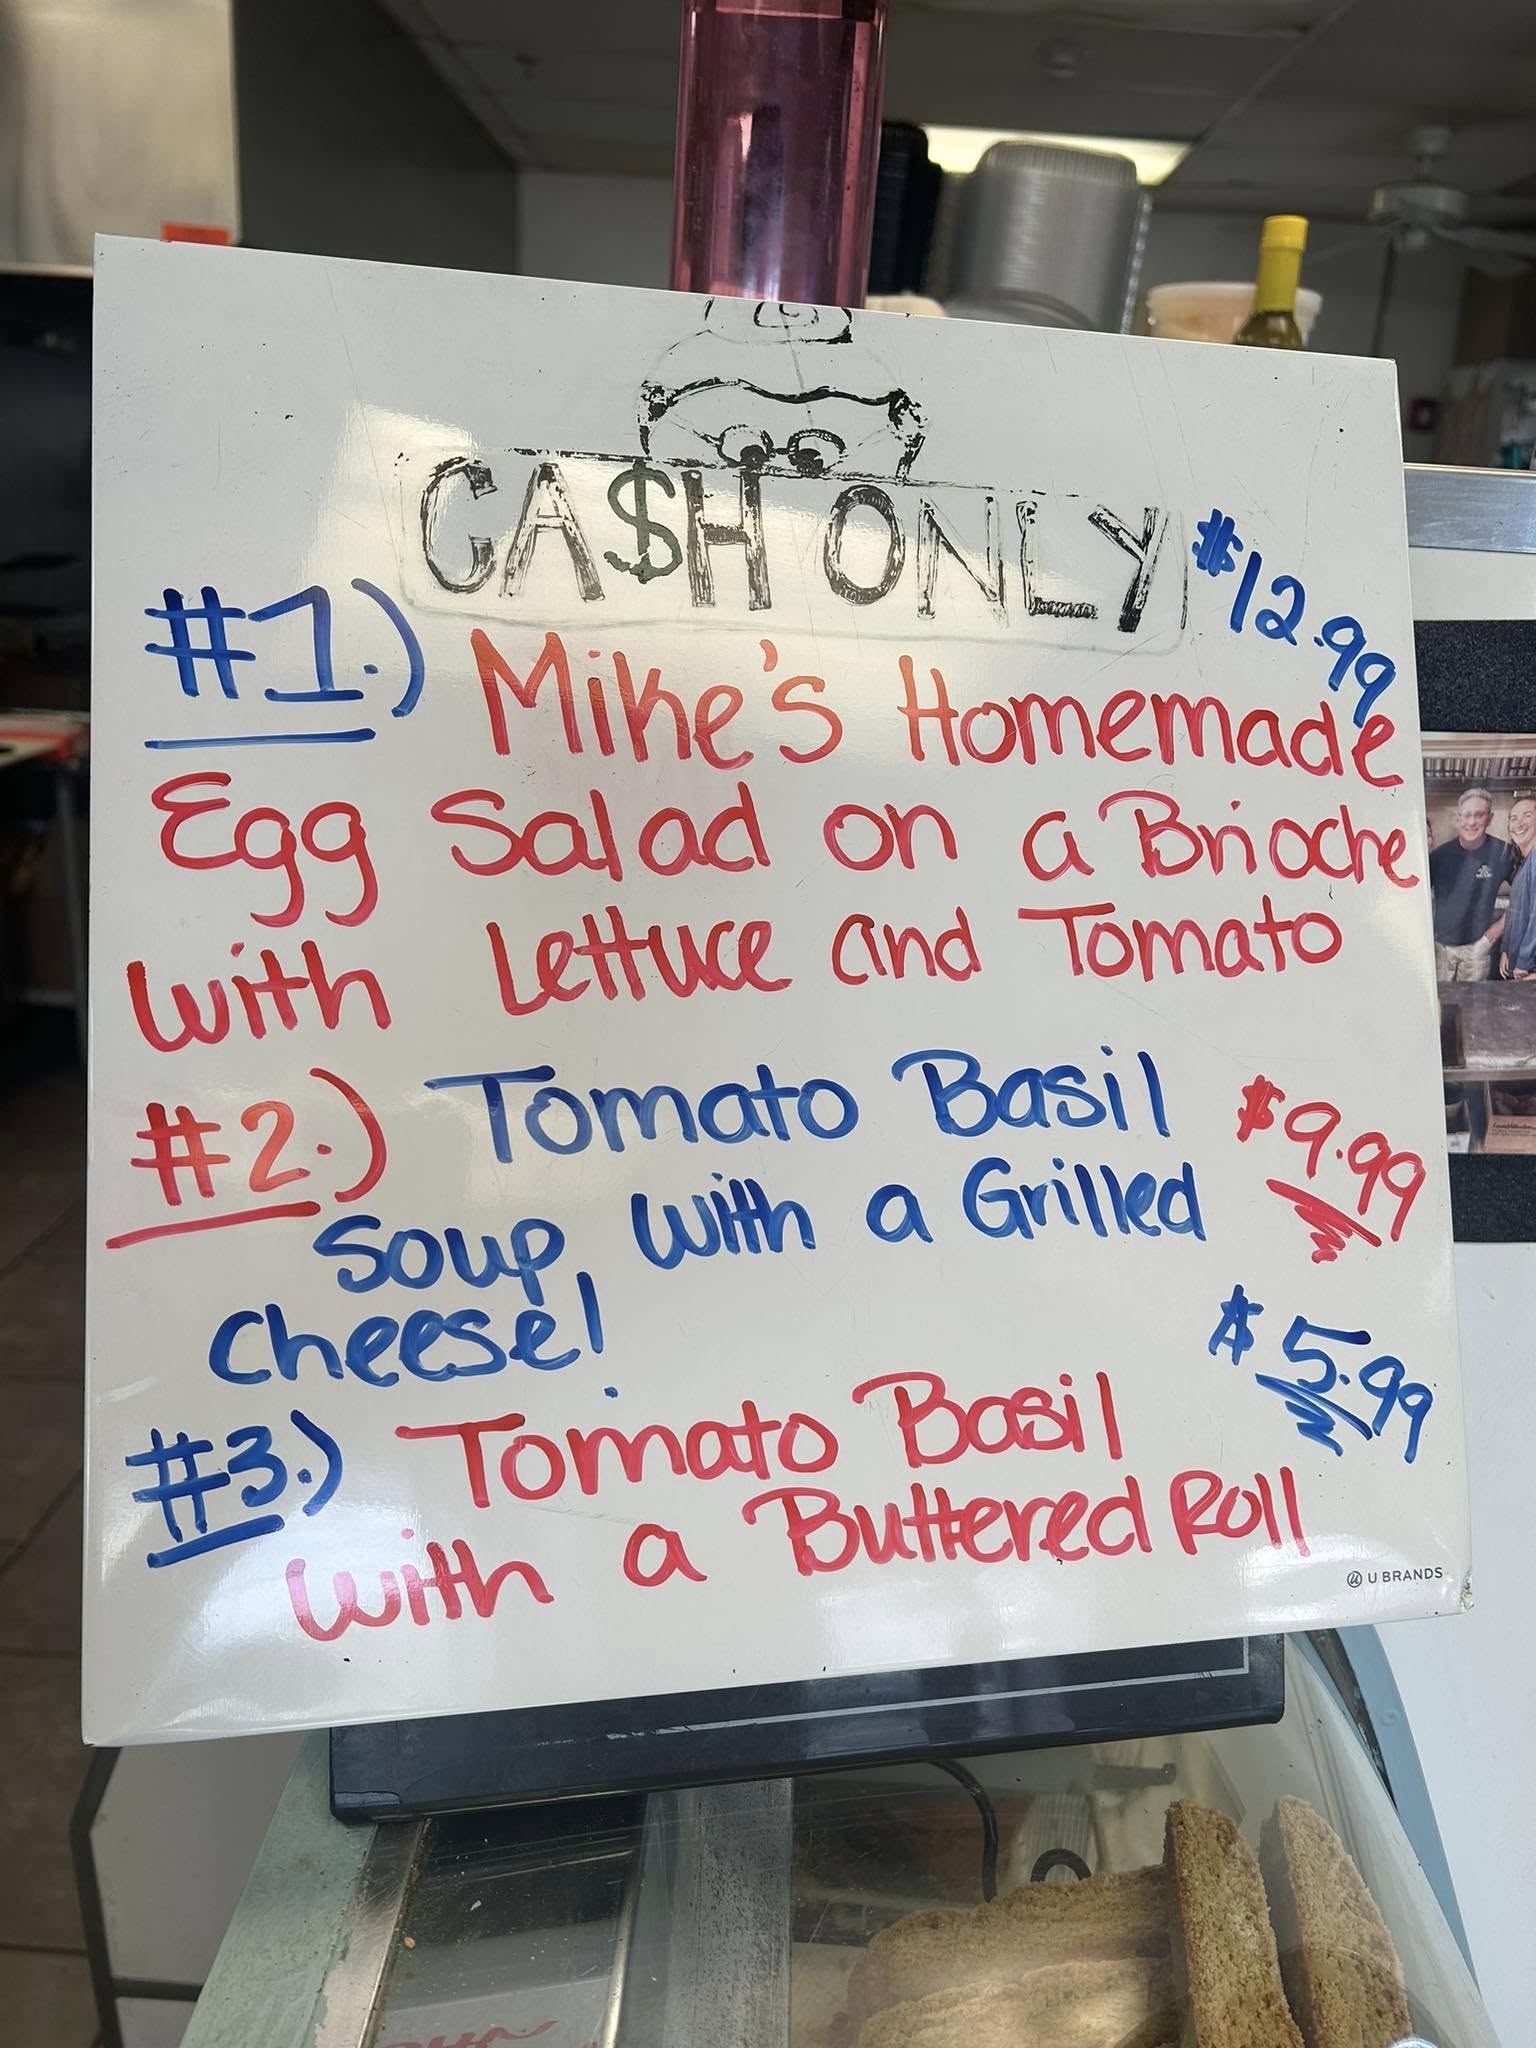 CA$H ONLY
$12.99
#1.) Mike's Homemade
Egg Salad on a Brioche
with Lettuce and Tomato
#2.) Tomato Basil $9.99
Soup with a Grilled
cheese!
$5.99
#3.) Tomato Basil
with a Buttered Roll
U BRANDS